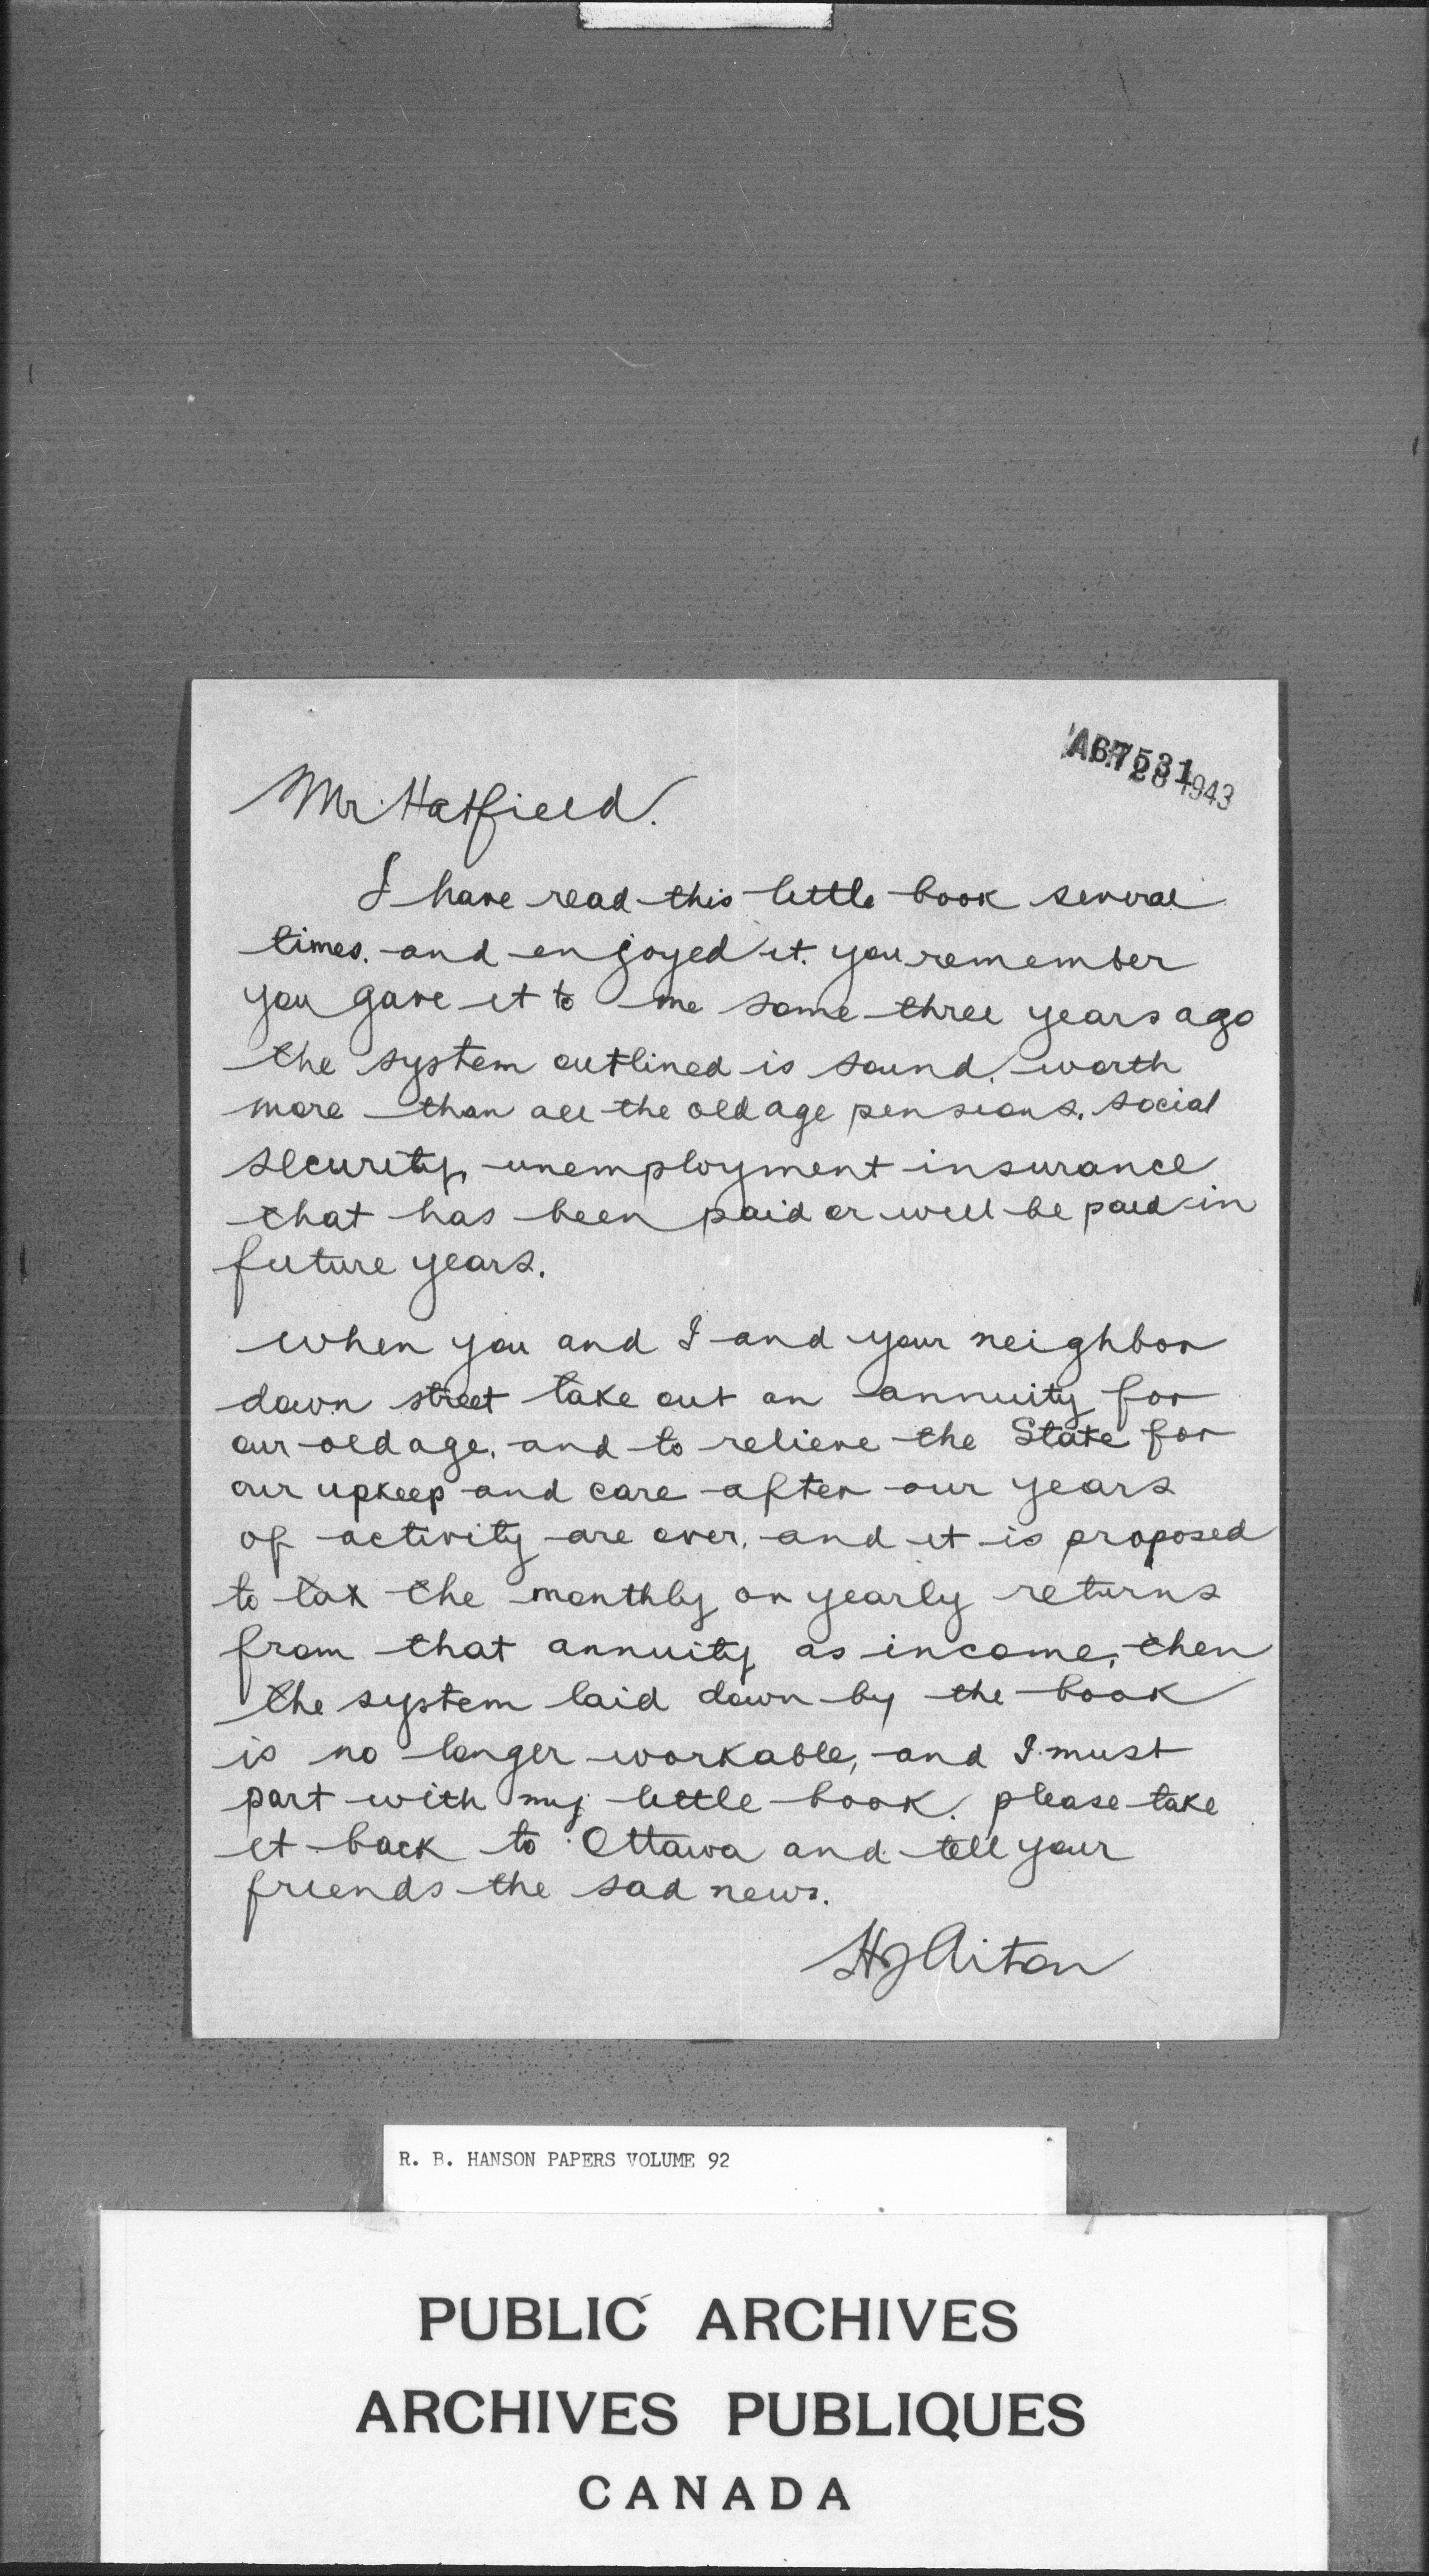 A67531
28 1943
Mr. Hatfield.
I have read this little book several
times. and enjoyed it. you remember
you gave it to me some three years ago
the system outlined is sound. worth
more than all the old age pensions. social
security, unemployment insurance
that has been paid or will be paid in
future years.
When you and I and your neighbor
down street take out an annuity for
our old age. and to relieve the State for
our upkeep and care after our years
of activity are over. and it is proposed
to tax the monthly or yearly returns
from that annuity as income, then
the system laid down by the book
is no longer workable, and I must
part with my little book. please take
it back to Ottawa and tell your
friends the sad news.
HJ Aiton
R. B. HANSON PAPERS VOLUME 92
PUBLIC ARCHIVES
ARCHIVES PUBLIQUES
CANADA